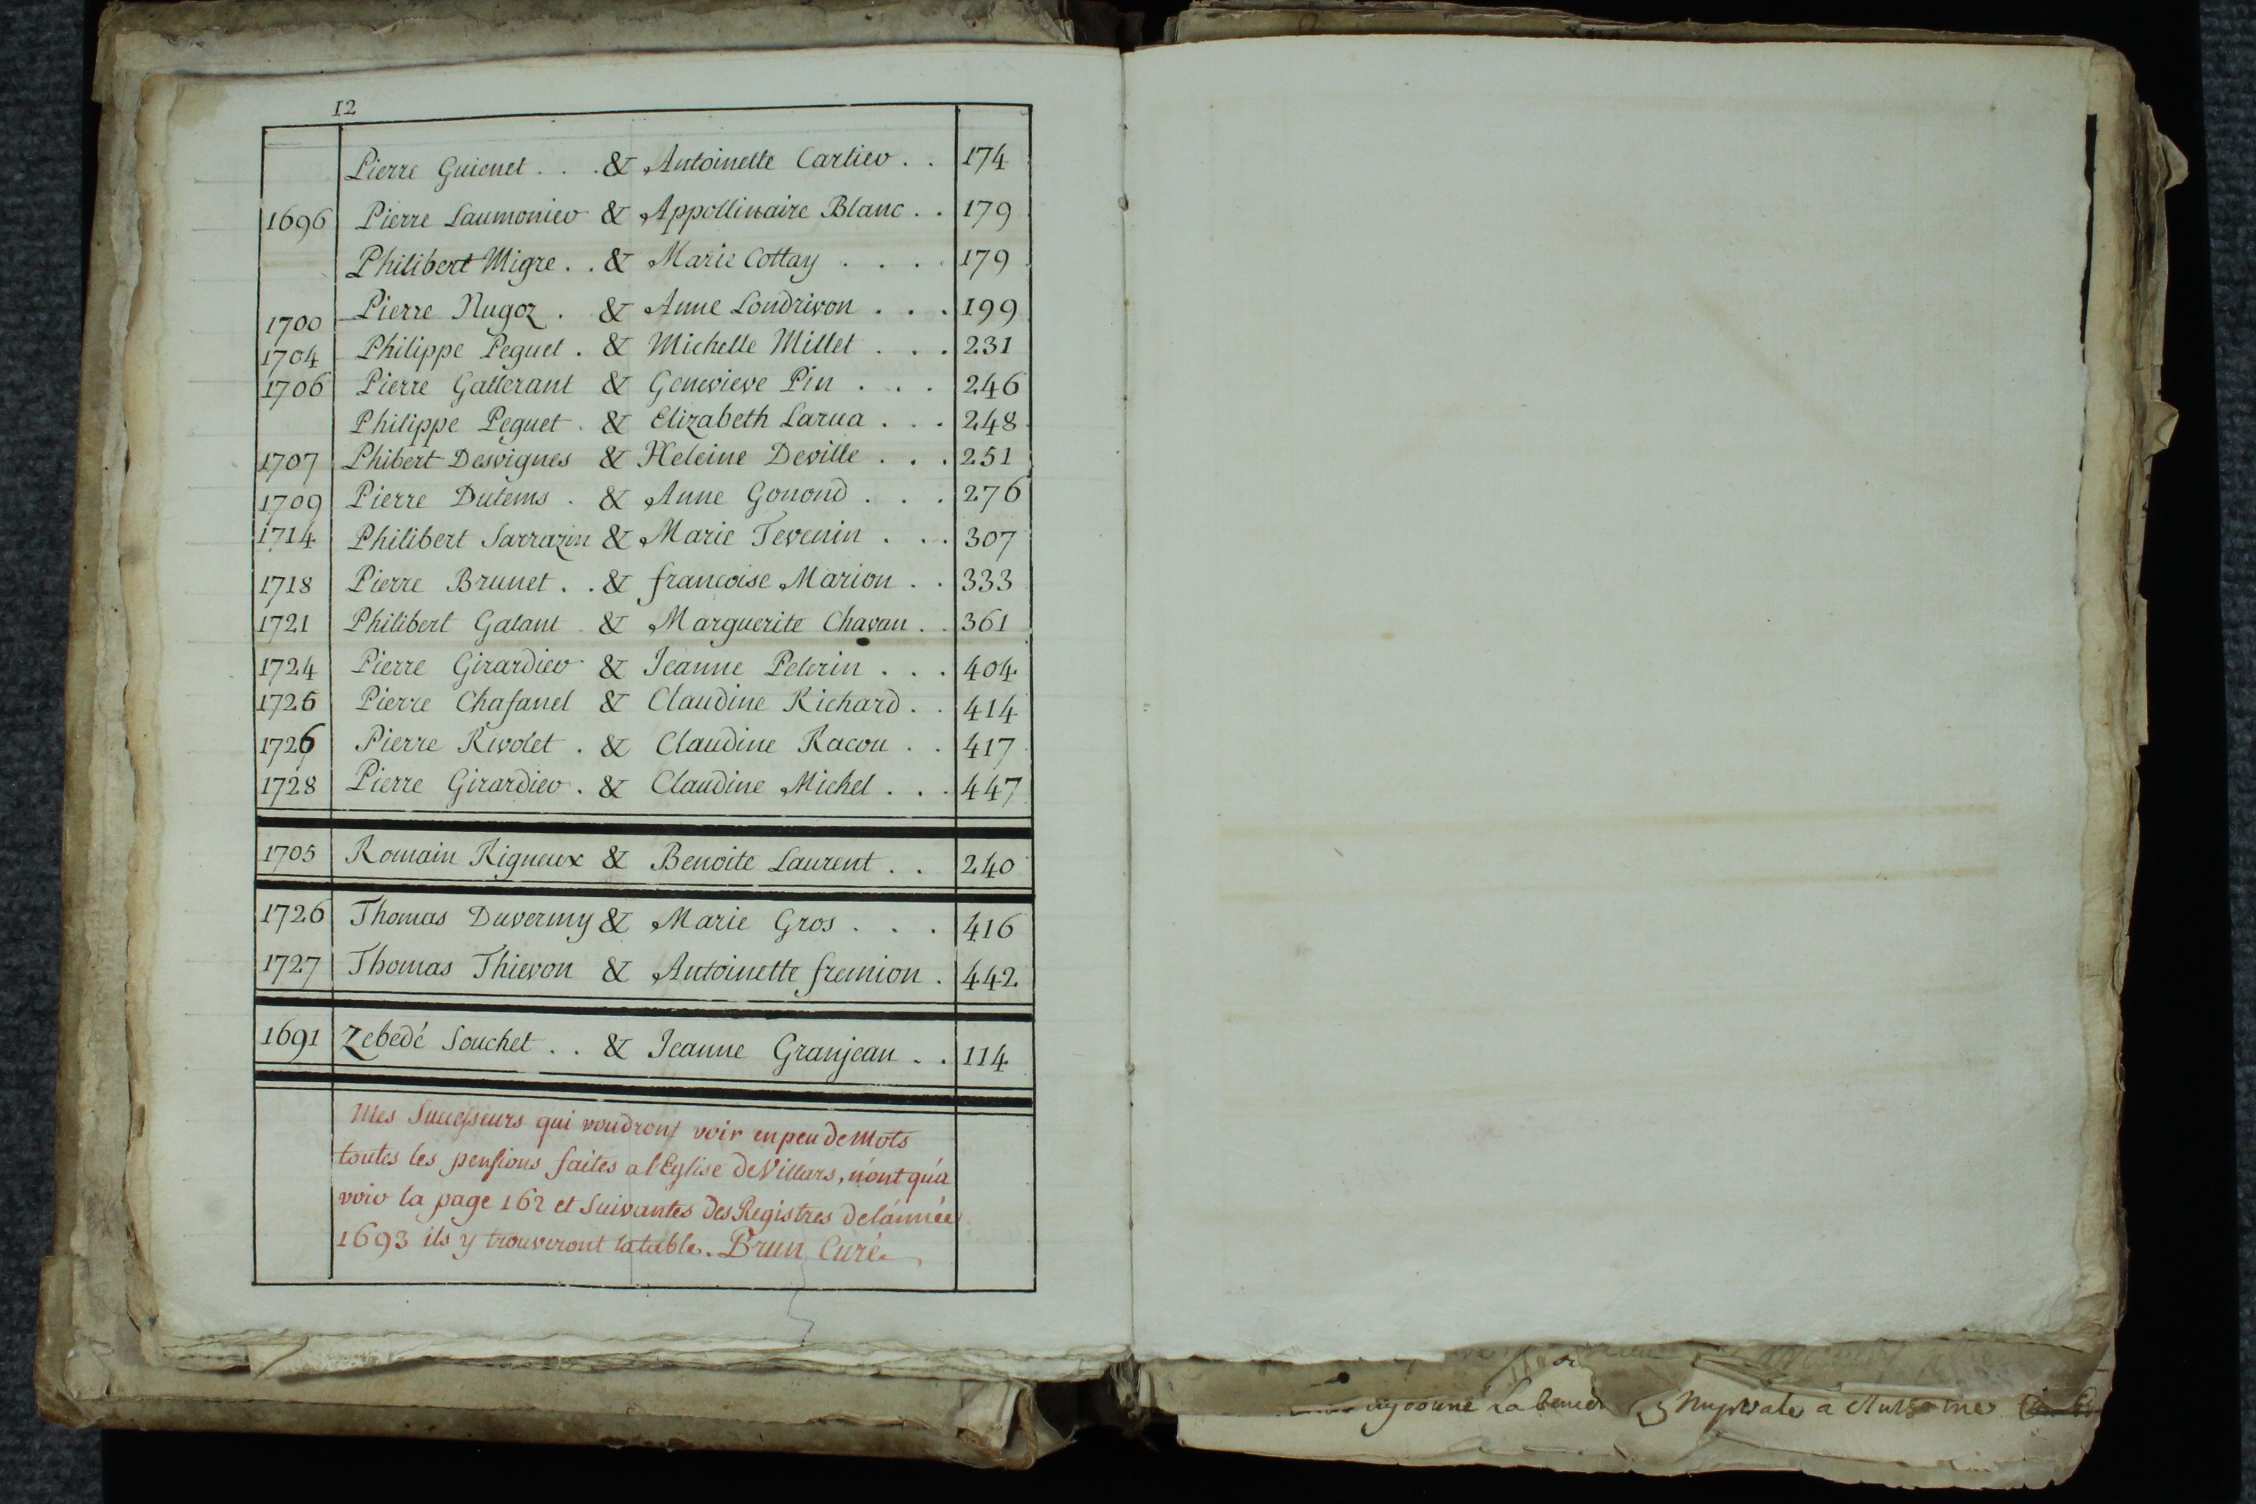 12
Pierre Guionet . . . & Antoinette Cartier . . 174
1696 Pierre Laumonier & Appollinaire Blanc . . 179
Philibert Migre . . & Marie Cottay . . . . 179
1700 Pierre Nugoz . & Anne Londrivon . . . 199
1704 Philippe Peguet . & Michelle Millet . . . 231
1706 Pierre Gallerant & Genevieve Pin . . . 246
Philippe Peguet . & Elizabeth Larua . . . 248
1707 Phibert Desvignes & Heleine Deville . . . 251
1709 Pierre Dutems . & Anne Gonond . . . 276
1714 Philibert Sarrazin & Marie Tevenin . . . 307
1718 Pierre Brunet . . & francoise Marion . . 333
1721 Philibert Galant . & Marguerite Chavan . . 361
1724 Pierre Girardier & Jeanne Pelerin . . . 404
1726 Pierre Chafanel & Claudine Richard . . 414
1726 Pierre Rivolet . & Claudine Racou . . 417
1728 Pierre Girardier . & Claudine Michel . . . 447
1705 Romain Rigneux & Benoite Laurent . . 240
1726 Thomas Duvermy & Marie Gros . . . 416
1727 Thomas Thievon & Antoinette fremion . 442
1691 Zebedé Souchet . . & Jeanne Granjean . . 114
Mes Successeurs qui voudront voir en peu de Mots
toutes les pensions faites a l'Eglise de Villars, n'ont qu'a
voir la page 162 et Suivantes des Registres de l'année
1693 ils y trouveront la table. Brun Curé.
Nuptiale a Antoine